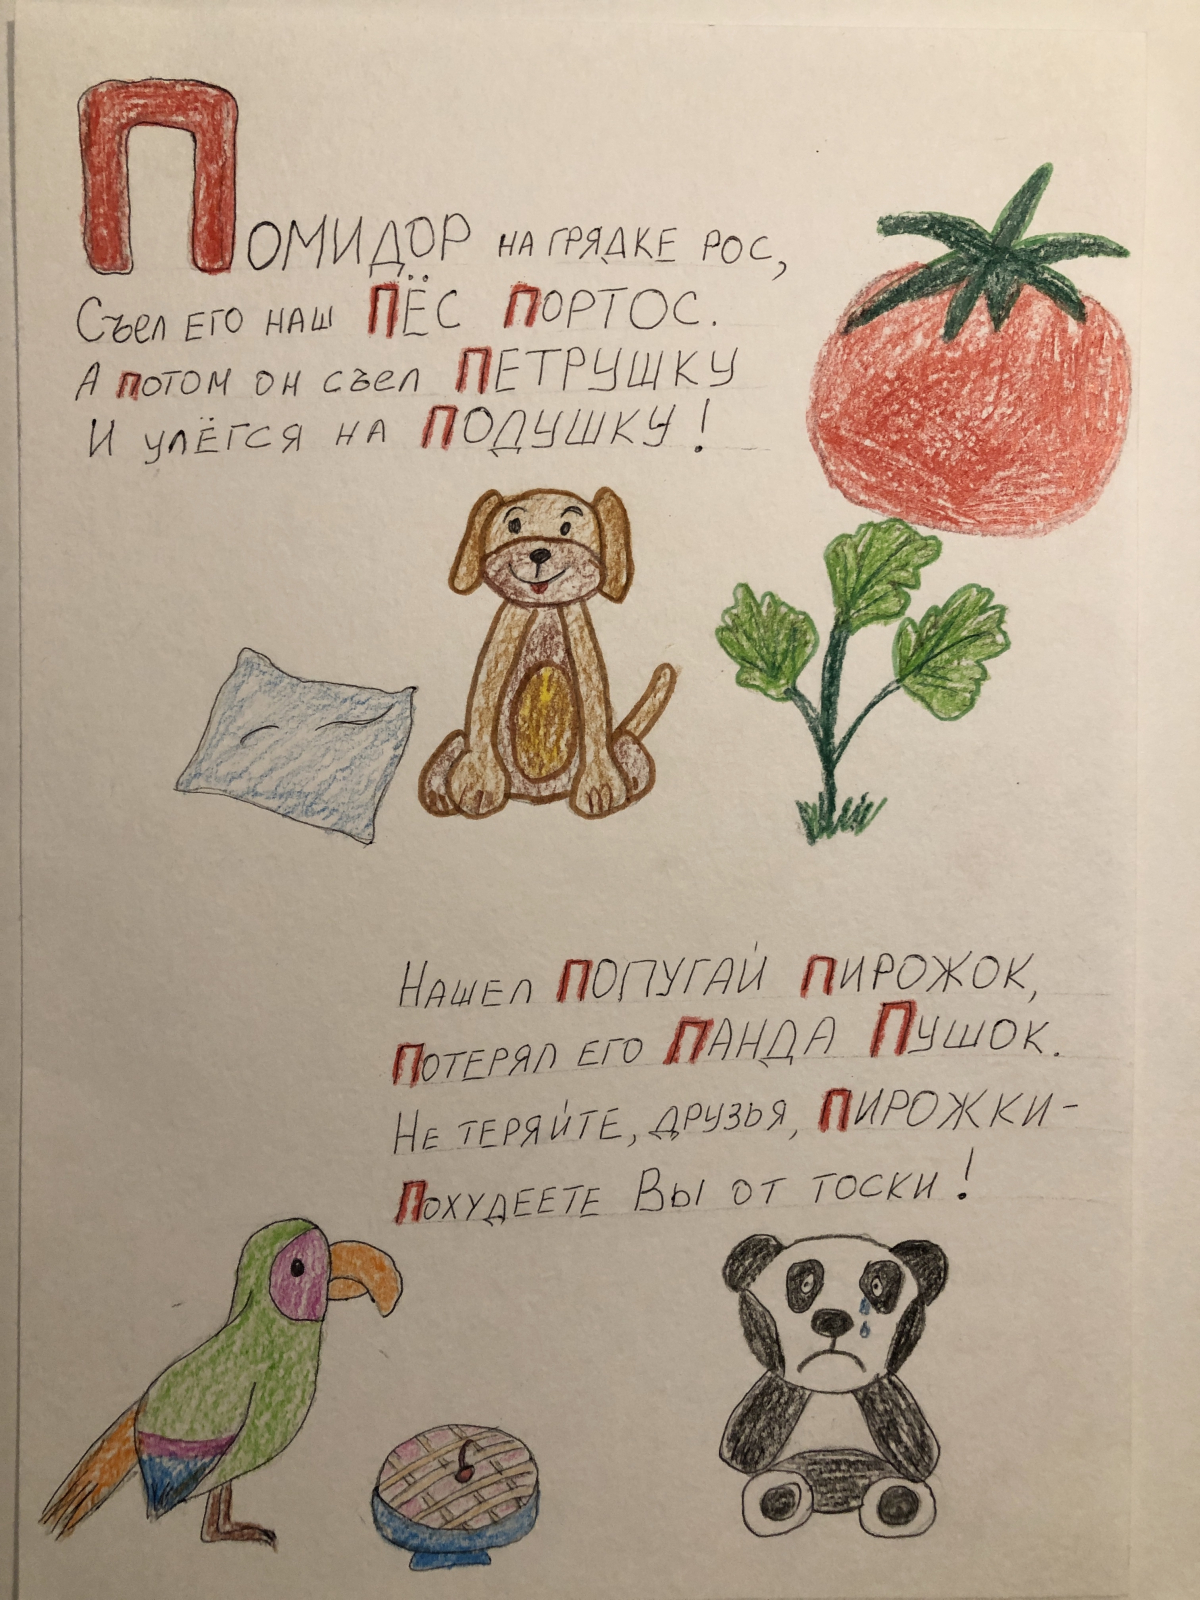 Помидор на грядке рос,
Съел его наш Пёс Портос.
А потом он съел Петрушку
И улёгся на Подушку!
Нашел Попугай Пирожок,
Потерял его Панда Пушок.
Не теряйте, друзья, Пирожки-
Похудеете Вы от тоски!